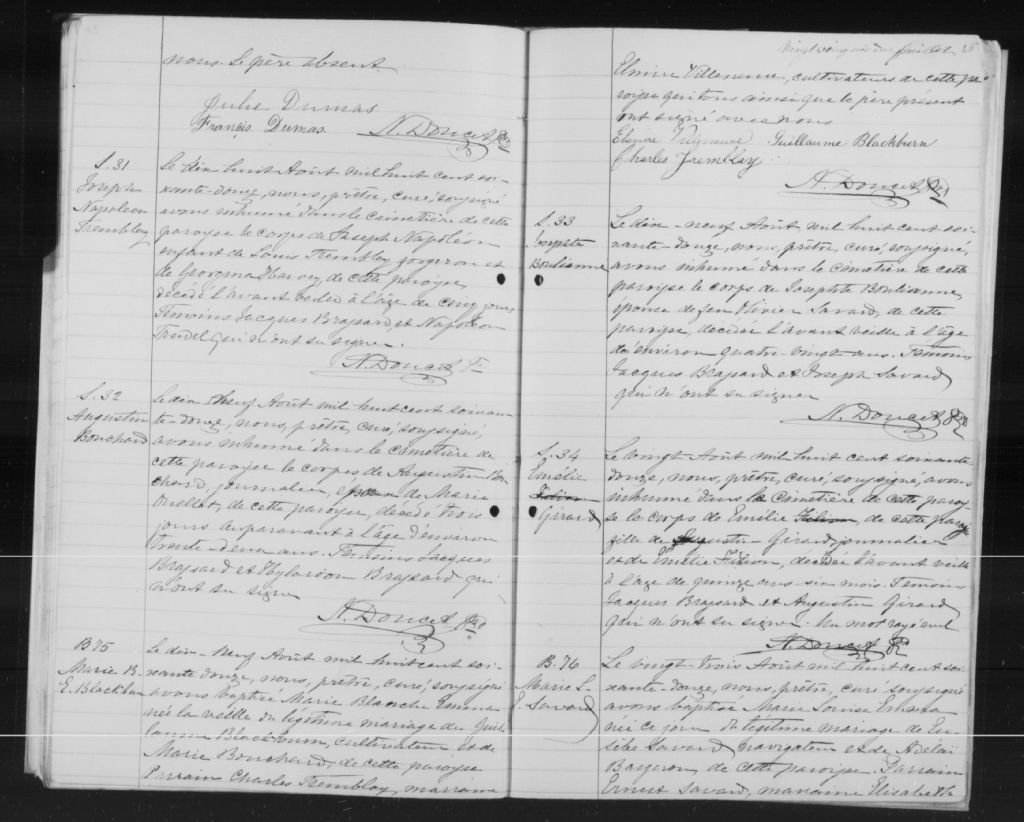 nous. Le père absent.
Jules Dumas
Francis Dumas. N. Doucet Ptr
S. 31
Joseph
Napoléon
Tremblay
Le dix huit Août mil huit cent soi-
xante-douze, nous, prêtre, curé, soussigné
avons inhumé dans le cimetière de cette
paroisse le corps de Joseph Napoléon
enfant de Louis Tremblay forgeron et
de Georgina Harvey de cette paroisse,
décédé l'avant veille à l'âge de cinq jours
Témoins Jacques Brassard, et Napoléon
Trudel qui n'ont su signer.
N. Doucet Ptr
S. 32
Augustin
Bouchard
Le dix Neuf Août mil huit cent soixan-
te-douze, nous, prêtre, curé, soussigné,
avons inhumé dans le cimetière de
cette paroisse le corps de Augustin Bou
chard, journalier, époux de Marie
Ouellet, de cette paroisse, décédé trois
jours auparavant à l'âge d'environ
trente-deux ans. Témoins Jacques
Brassard et Brassard qui
n'ont su signer
N. Doucet Ptr
B 75
Marie B.
E. Blackburn
Le dix-Neuf Août mil huit cent soi-
xante douze, nous, prêtre, curé, soussigné
avons baptisé Marie Blanche
née la veille du légitime mariage de Guil
laume Blackburn, cultivateur et de
Marie Bouchard, de cette paroisse
Parrain Charles Tremblay, marraine
Vingt cinquième feuillet 25
Elmire Villeneuve, cultivateurs de cette pa
roisse qui tous ainsi que le père présent
ont signé avec nous
Villeneuve Guillaume Blackburn
Charles Tremblay
N. Doucet Ptr
S. 33
Josephte
Boulianne
Le dix-neuf Août mil huit cent soi-
xante-douze, nous, prêtre, curé, soussigné,
avons inhumé dans le cimetière de cette
paroisse le corps de Josephte Boulianne,
épouse de feu Olivier Savard, de cette
paroisse, décédée l'avant veille à l'âge
d'environ quatre vingt ans. Témoins
Jacques Brassard et Joseph Savard
qui n'ont su signer
N. Doucet Ptr
S. 34
Emélie
Filion
Girard
Le vingt Août mil huit cent soixante-
douze, nous, prêtre, curé, soussigné, avons
inhumé dans le Cimetière de cette parois-
se le corps de Emélie Filion, de cette paroisse
fille de Augustin Girard journalier
et de Emélie Filion, décédée l'avant veille
à l'âge de quinze ans six mois. Témoins
Jacques Brassard et Augustin Girard
qui n'ont su signer. Un mot rayé nul
N. Doucet Ptr
B. 76
Marie L.
E. Savard
Le vingt-trois Août mil huit cent soi-
xante-douze, nous, prêtre, curé, soussigné
avons baptisé Marie Louise
née ce jour du légitime mariage de Eu-
sèbe Savard navigateur et de
Bergeron, de cette paroisse Parrain
Ernest Savard, marraine Elisabeth